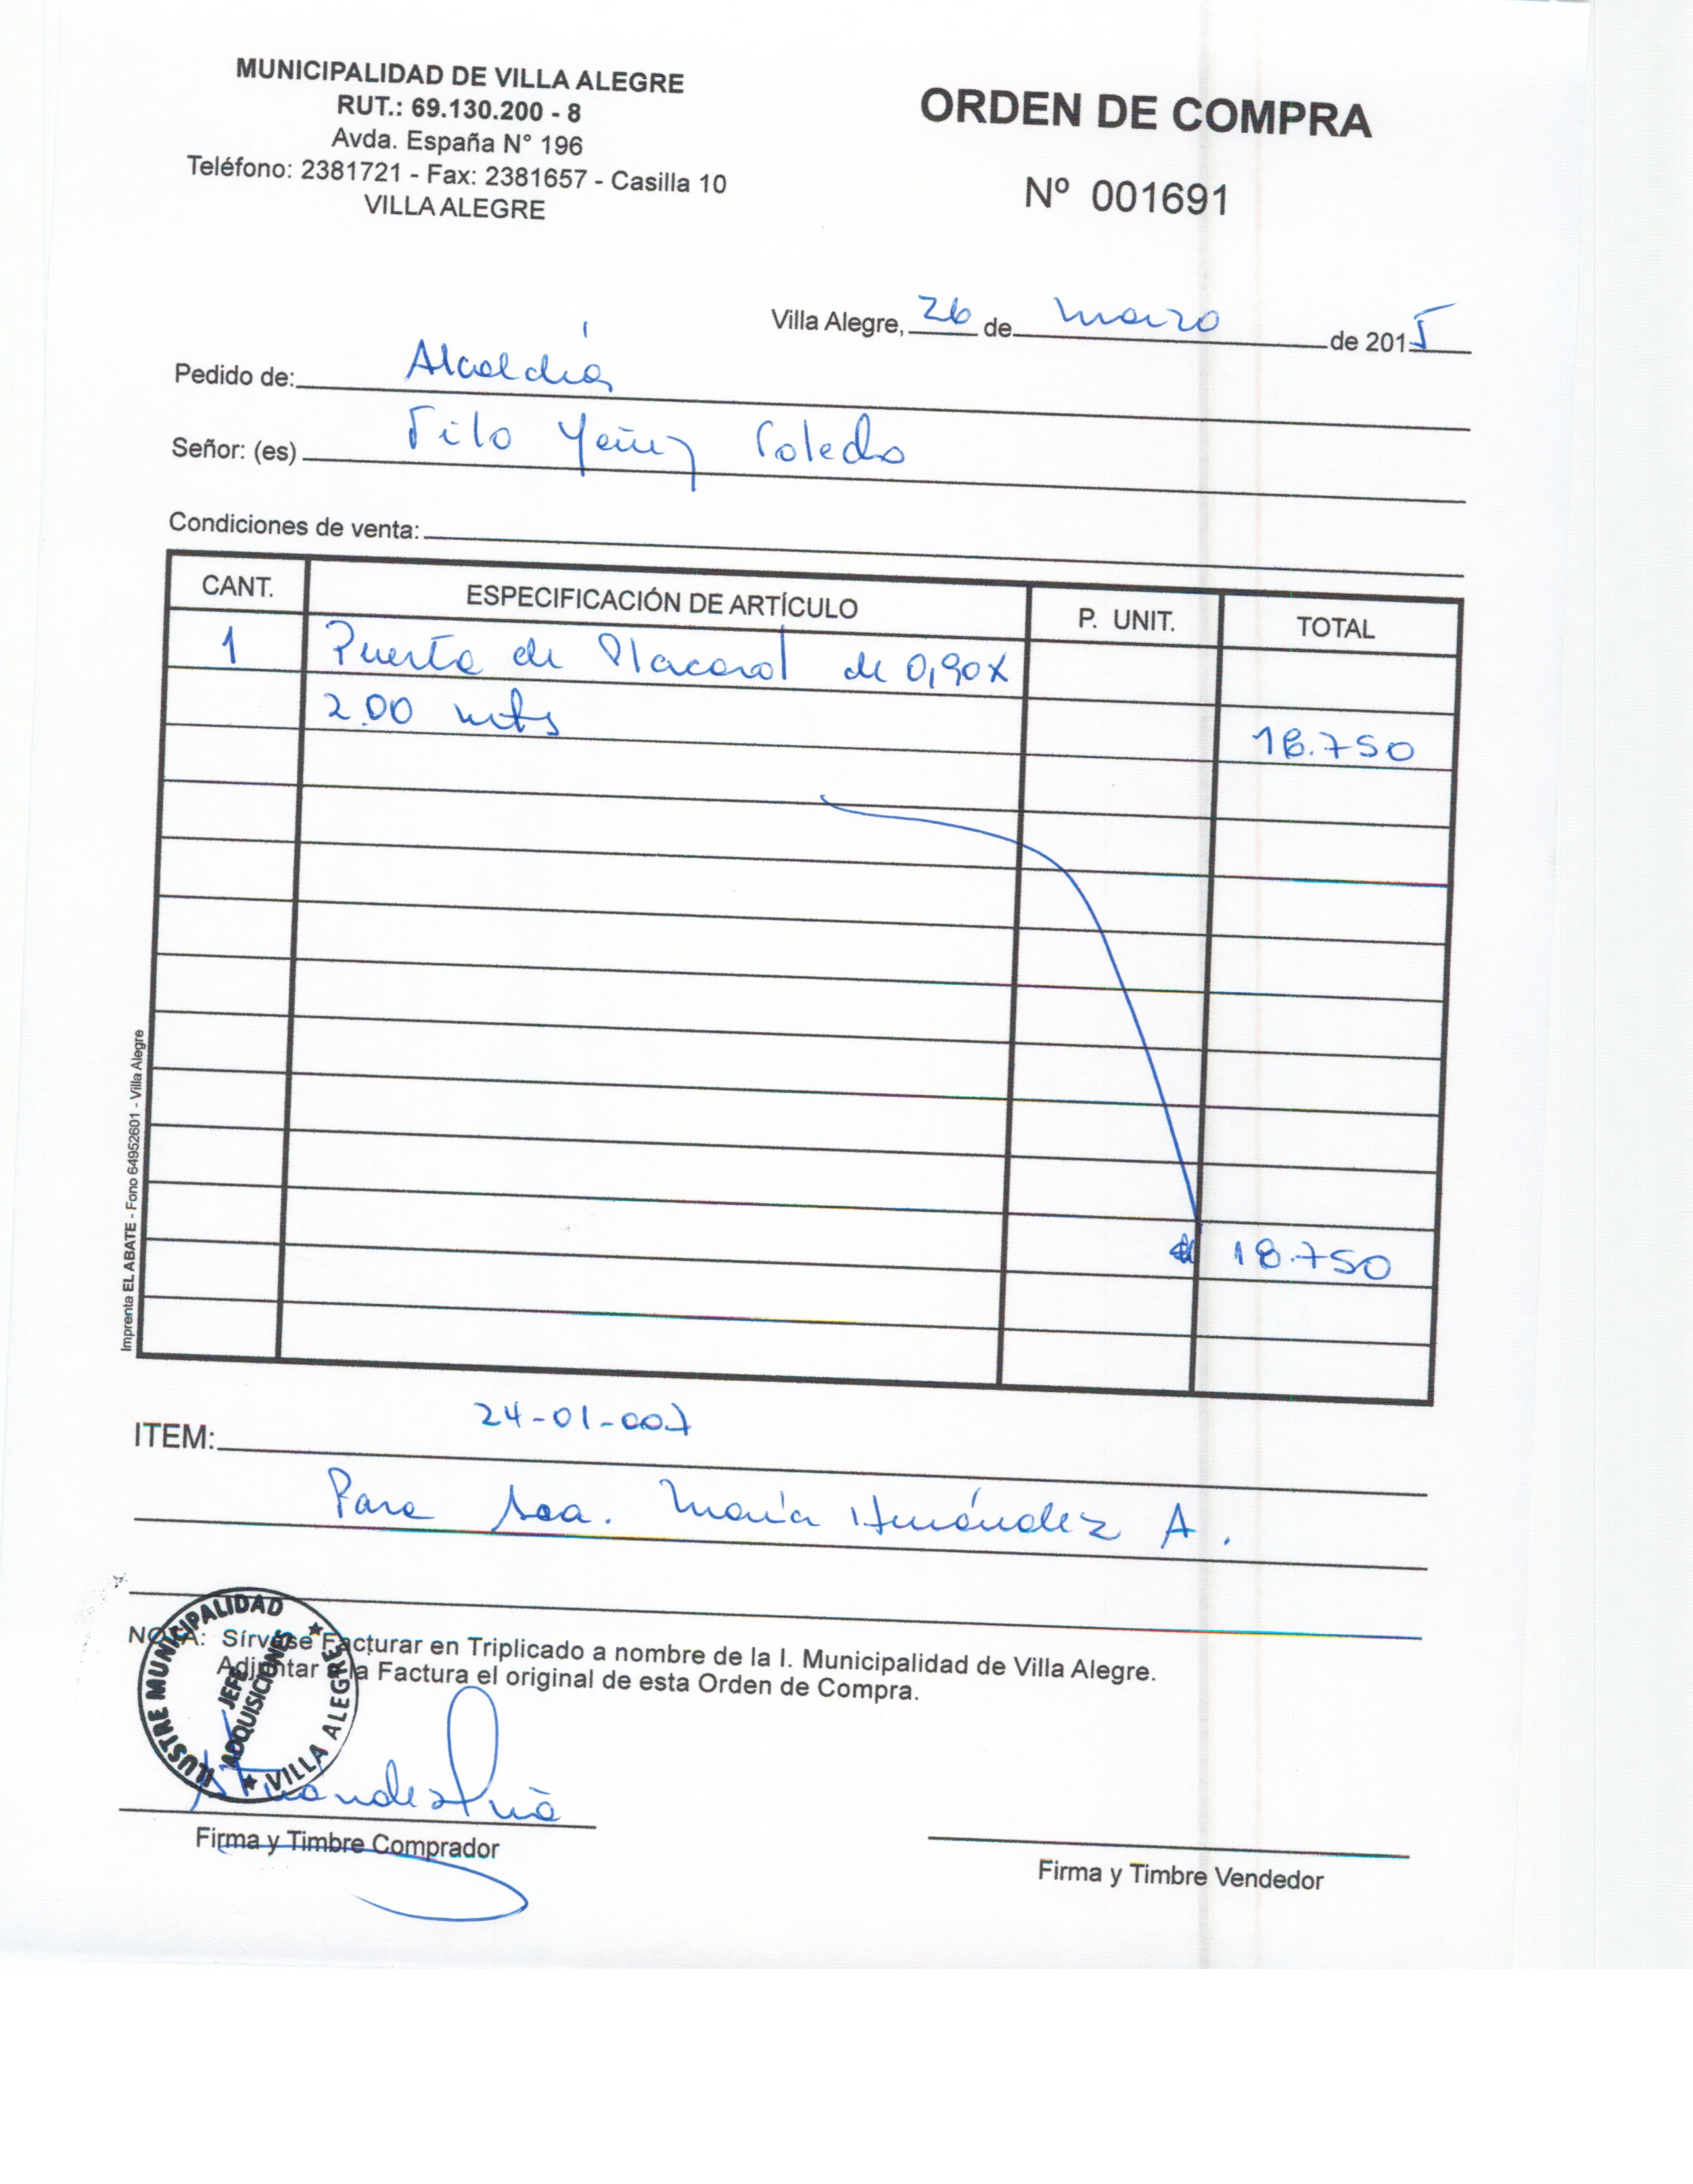 MUNICIPALIDAD DE VILLA ALEGRE
RUT.: 69.130.200 - 8
Avda. España N° 196
Teléfono: 2381721 - Fax: 2381657 - Casilla 10
VILLA ALEGRE
ORDEN DE COMPRA
Nº 001691
Villa Alegre, 26 de marzo de 2015
Pedido de: Alcaldía
Señor: (es) Tilo Yañez Toledo
Condiciones de venta:
CANT. ESPECIFICACIÓN DE ARTÍCULO P. UNIT. TOTAL
1 Puerta de Placarol de 0,90x
2.00 mts 18.750
18.750
Imprenta EL ABATE - Fono 64952601 - Villa Alegre
ITEM: 24-01-007
Para Sra. María Hernández A.
NOTA: Sírvase Facturar en Triplicado a nombre de la I. Municipalidad de Villa Alegre.
Adjuntar a la Factura el original de esta Orden de Compra.
ILUSTRE MUNICIPALIDAD
JEFE
ADQUISICIONES
★ VILLA ALEGRE ★
Firma y Timbre Comprador
Firma y Timbre Vendedor